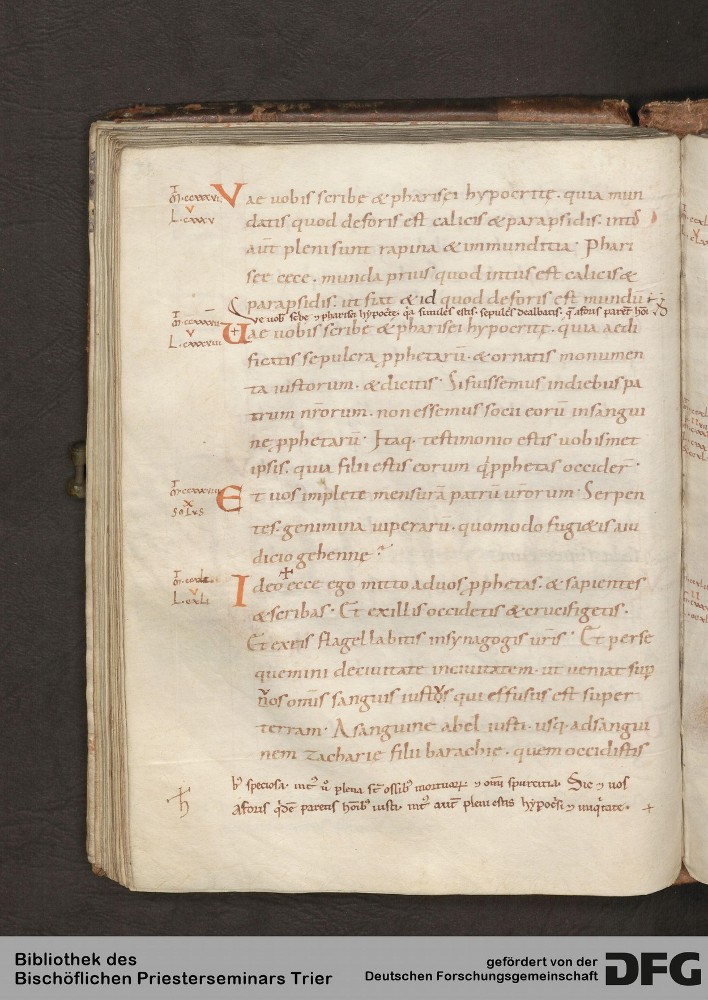 Vae uobis scribe & pharisei hypocritę. quia mun
datis quod deforis est calicis & parapsidis. int
aut̄ pleni sunt rapina & inmunditia. Phari
see cece. munda prius quod intus est calicis &
parapsidis. ut fiat & id quod deforis est mundū
Ve uob scbe & pharisei hypocrite. qa similes estis. sepulcs dealbatis. q aforis parent hoi
Uae uobis scribe & pharisei hypocritę. quia aedi
ficatis sepulcra pphetarū. & ornatis monumen
ta iustorum. & dicitis. Si fuissemus in diebus pa
trum nr̄orum. non essemus socii eorū in sangui
ne pphetarū. Itaq. testimonio estis uobismet
ipsis. quia filii estis eorum q pphetas occider̄.
Et uos implete mensurā patrū ur̄orum. Serpen
tes. genimina uiperarū. quomodo fugi&is a iu
dicio gehennę?
Ideo ecce ego mitto ad uos pphetas. & sapientes
& scribas. Et ex illis occidetis & crucifigetis.
Et ex eis flagellabitis in synagogis ur̄is. Et perse
quemini de ciuitate in ciuitatem. ut ueniat sup
uos omīs sanguis iustus qui effusus est super
terram. A sanguine abel iusti. usq. ad sangui
nem zacharie filii barachie. quem occidistis
b speciosa. int u plena st ossib mortuor & omi spurcitia. Sic & uos
aforis qde paretis hoib iusti. int aut pleni estis hypocsi & iniqtate.
Bibliothek des
Bischöflichen Priesterseminars Trier
gefördert von der
Deutschen Forschungsgemeinschaft
DFG